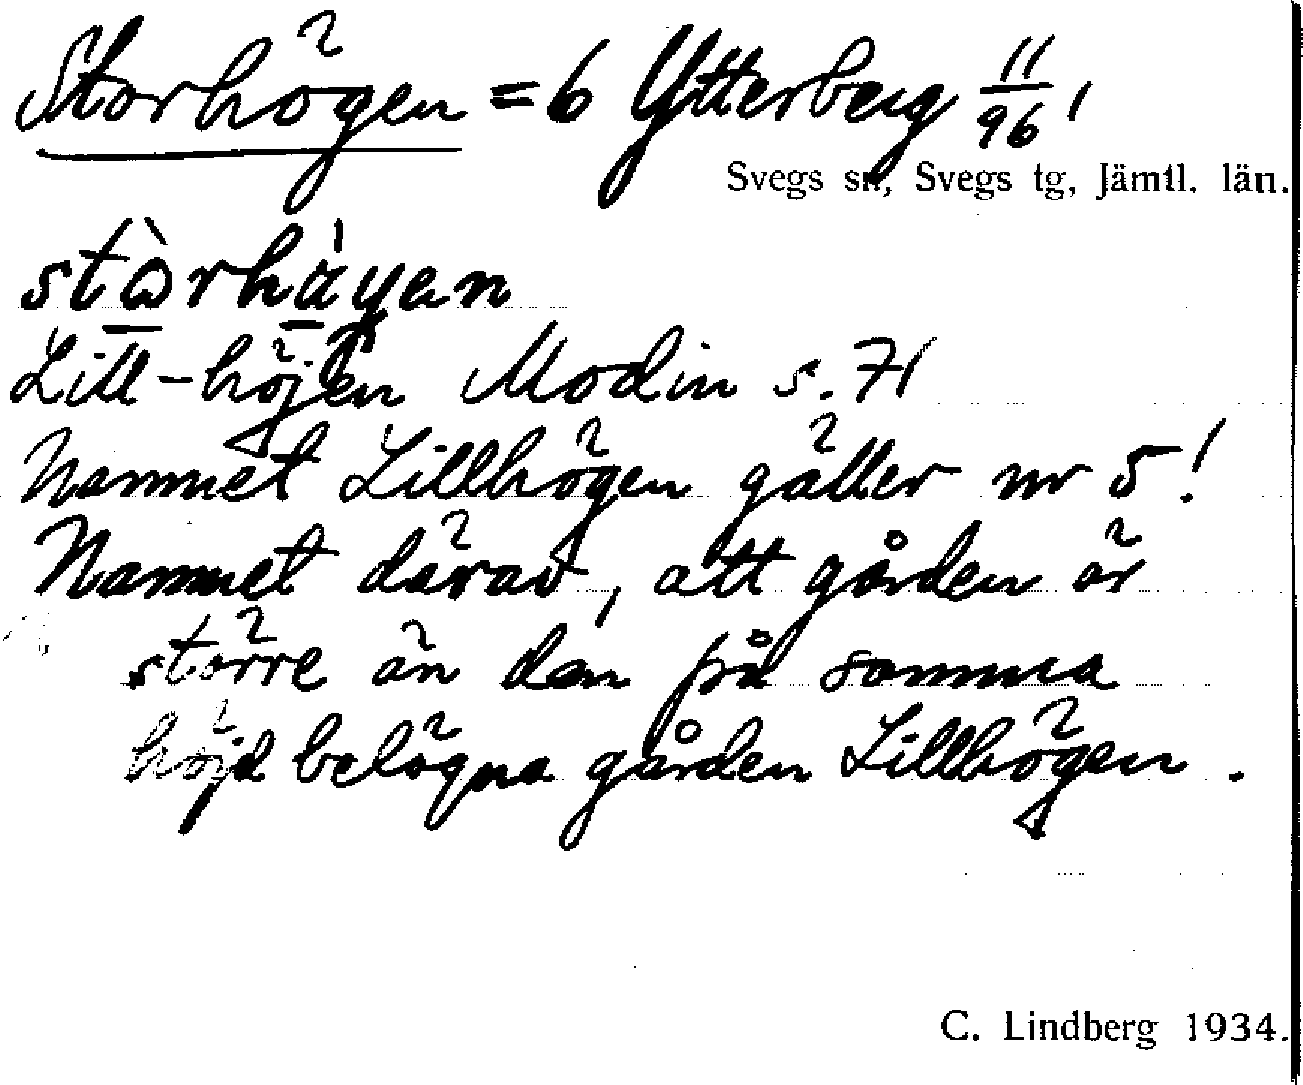 Storhögen = 6 Ytterberg 11/96,
Svegs sn, Svegs tg, Jämtl. län.
Lill-höjen Modin s. 71
Namnet Lillhögen gäller nr 5!
Namnet därav, att gården är
större än den på samma
höjd belägna gården Lillhögen.
C. Lindberg 1934.